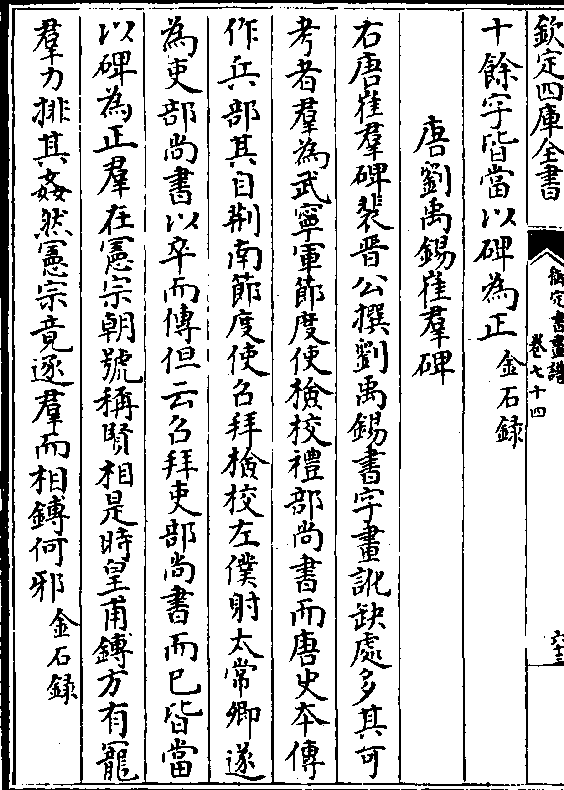 欽定四庫全書
御定書畫譜
卷七十四
六十三
十餘字皆當以碑為正金石録
唐劉禹錫崔羣碑
右唐崔羣碑裴晉公撰劉禹錫書字畫訛缺處多其可
考者羣為武寧軍節度使檢校禮部尚書而唐史本傳
作兵部其自荆南節度使召拜檢校左僕射太常卿遂
為吏部尚書以卒而傳但云召拜吏部尚書而已皆當
以碑為正羣在憲宗朝號稱賢相是時皇甫鏄方有寵
羣力排其姦然憲宗竟逐羣而相鏄何邪金石録